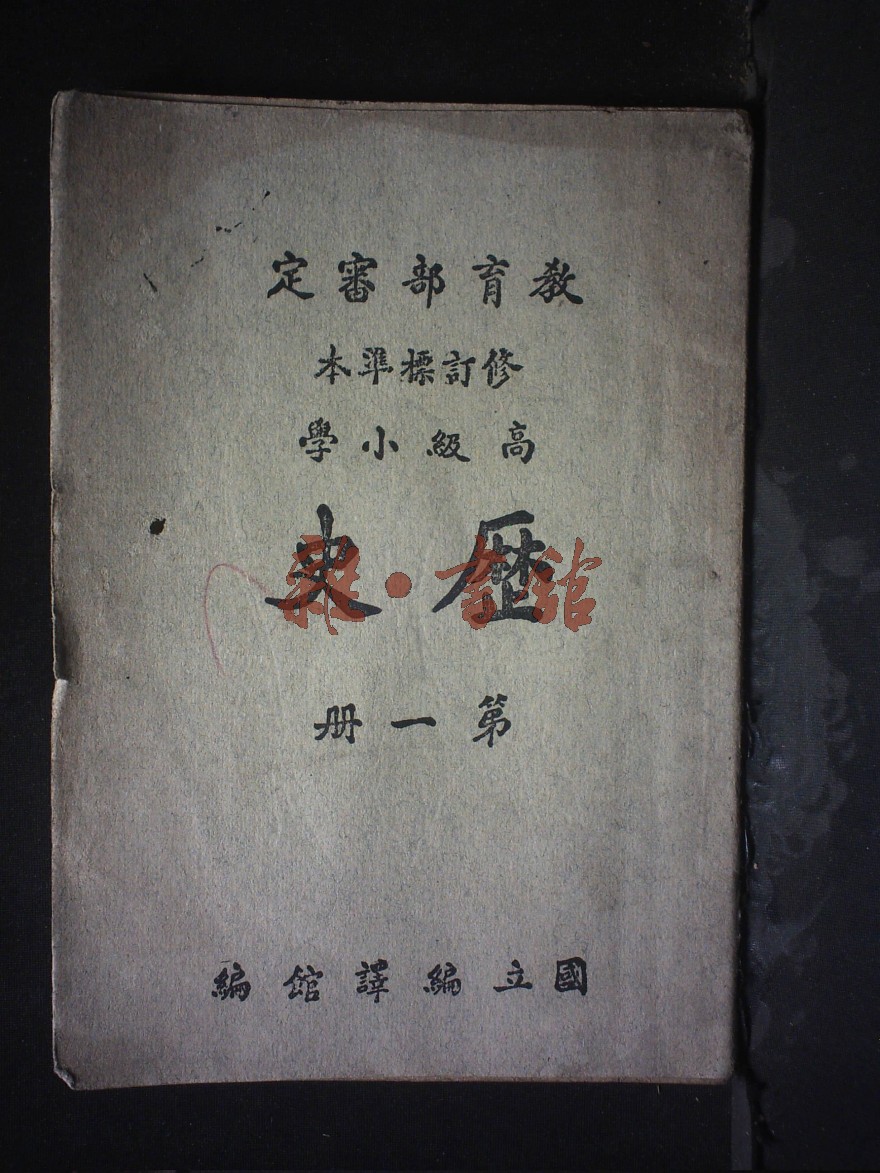 教育部審定
修訂標準本
高級小學
歷史
雜·書館
第一册
國立編譯館編